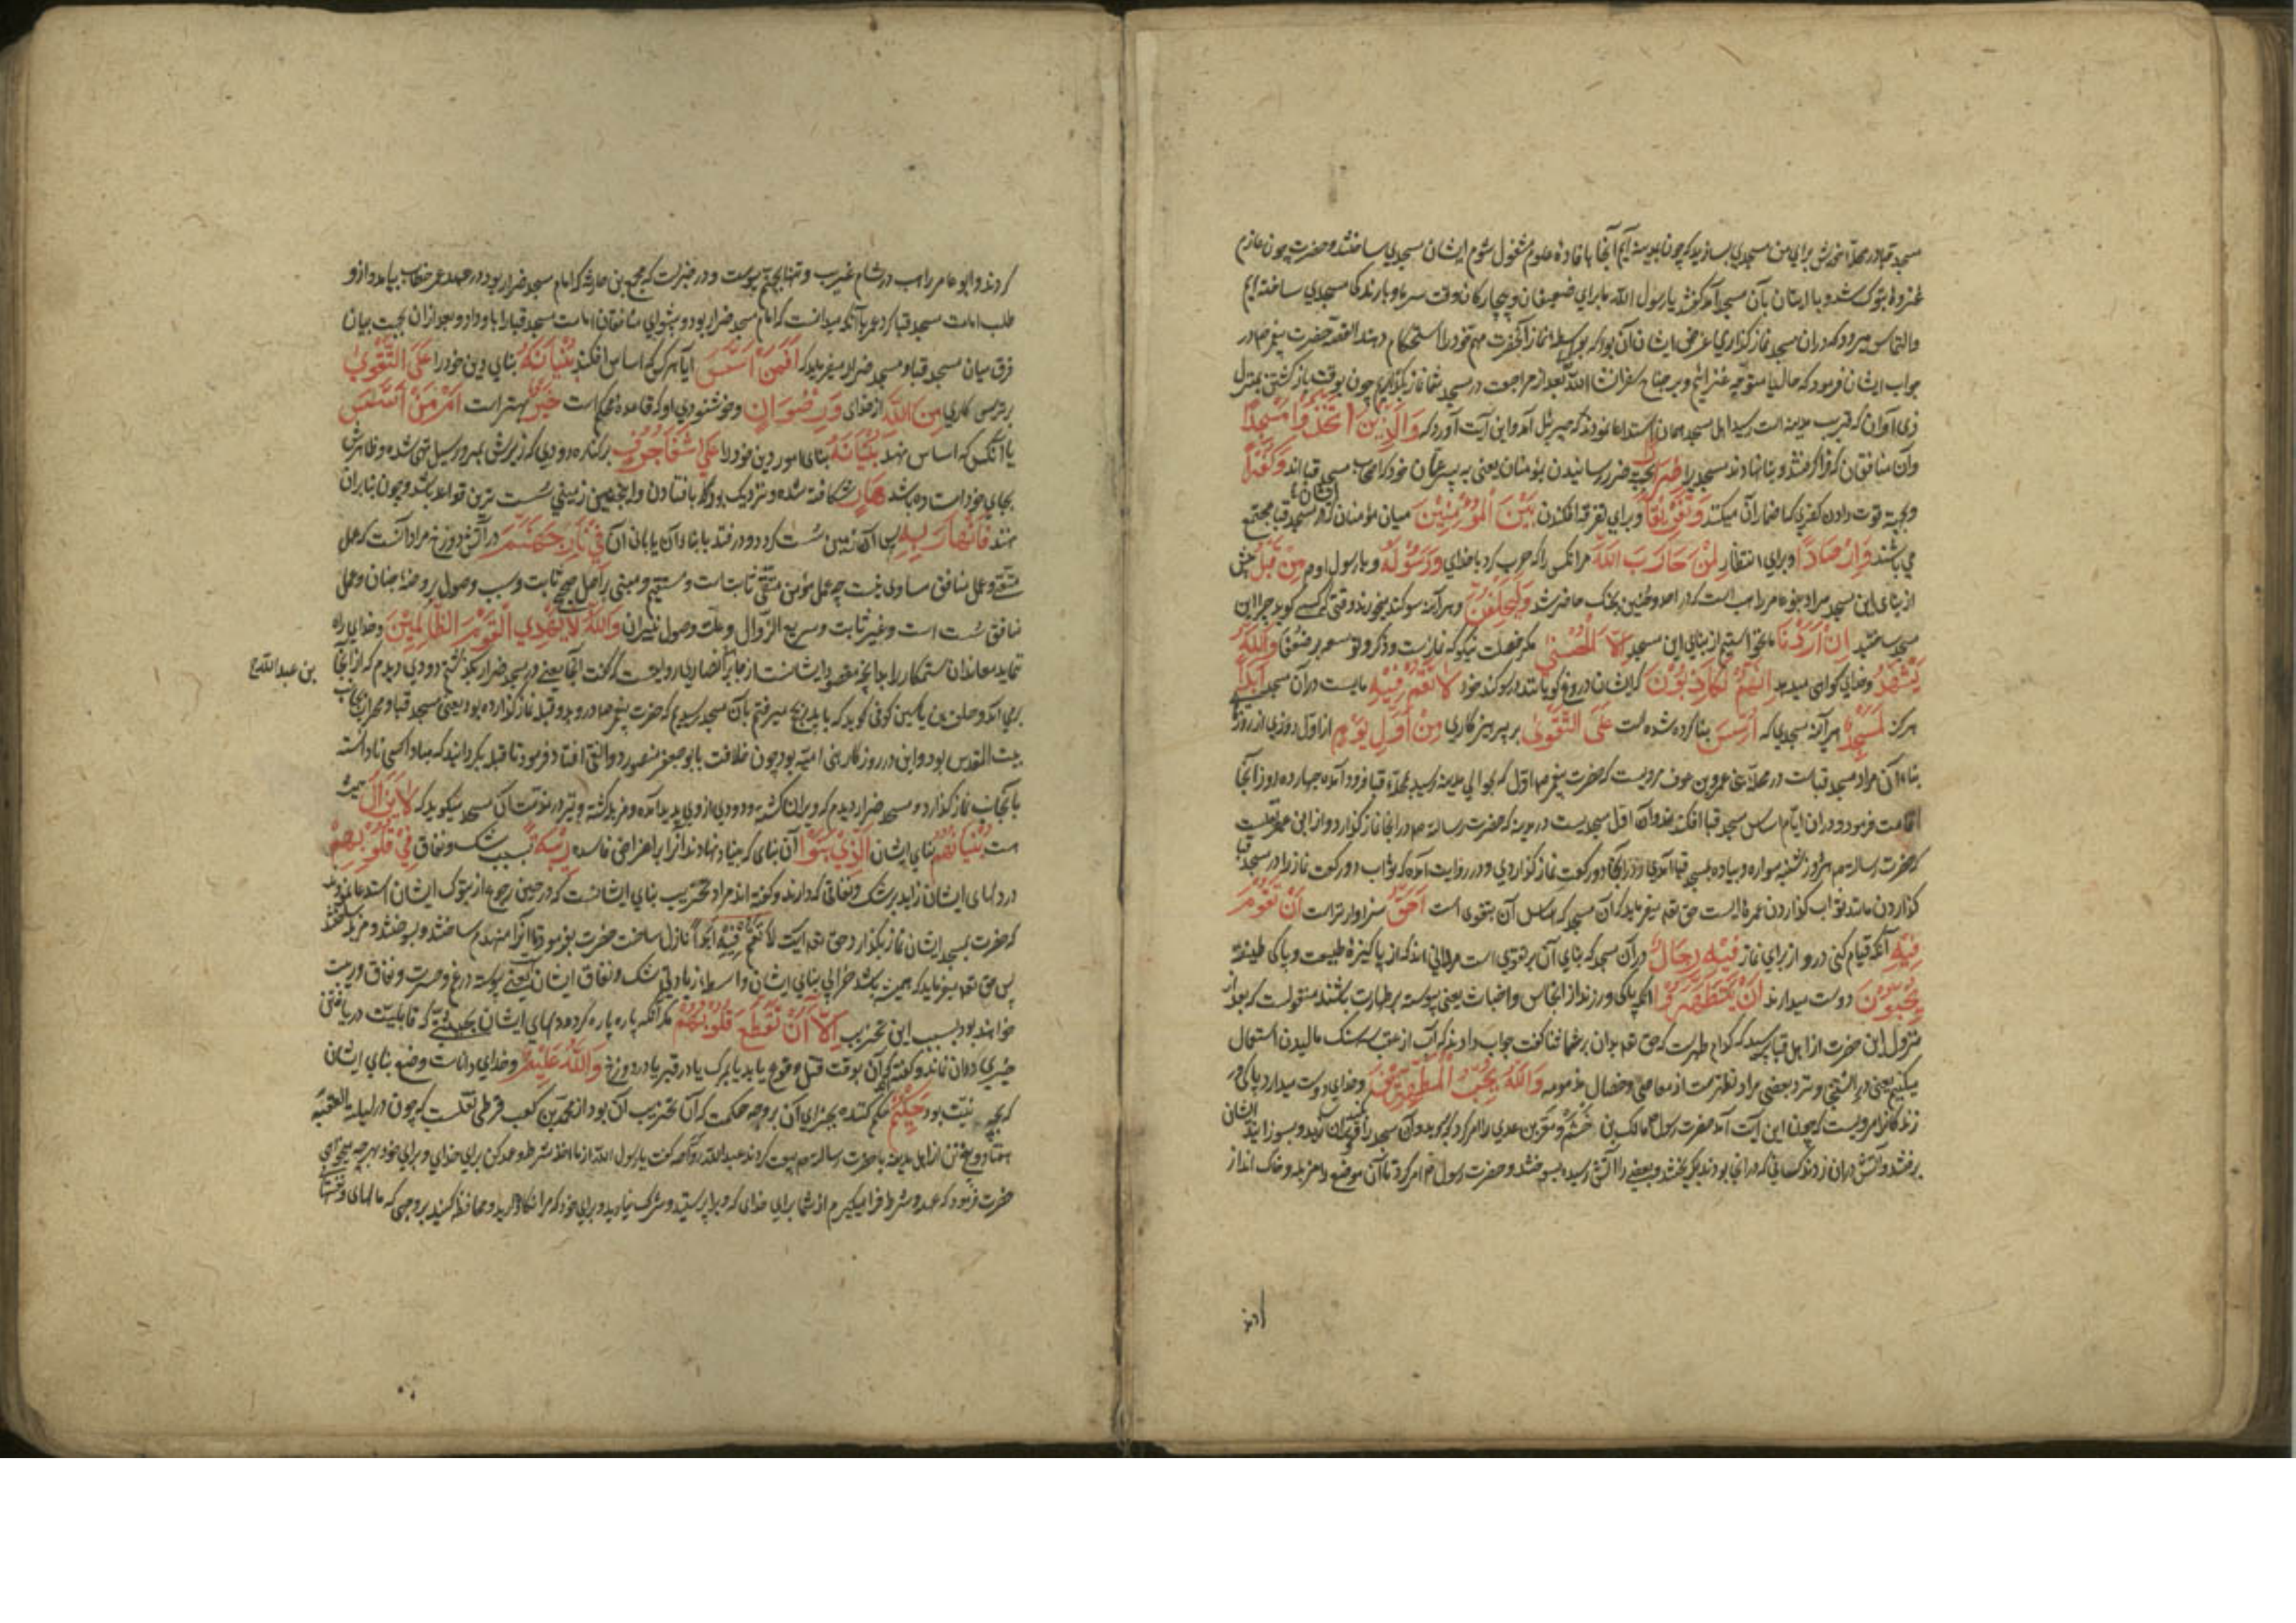 مسجد قبا در محلهٔ خویش برای من مسجدی بسازید که چون بمدینه آیم آنجا بافادهٔ علوم مشغول شوم ایشان مسجدی ساختند و حضرت چون عازم
غزوهٔ تبوک شد و با ایشان بآن مسجد آمد گفتند یا رسول الله ما برای ضعیفان و بیچارکان وقت سرما و بارندکی مسجدی ساخته ایم
والتماس میرود که در ان مسجد نماز گذاری غرض ایشان آن بود که بواسطهٔ نماز آنحضرت مهم خود را استحکام دهند القصه حضرت پیغمبر صلعم در
جواب ایشان فرمود که حالیا متوجه غزا ایم و بر جناح سفر ان شا الله بعد از مراجعت در مسجد شما نماز بگذاریم چون بوقت بازگشتن بمنزل
ذی اوان که قریب مدینه است رسید اهل مسجد همان استدعا نمودند که جبرئیل آمد و این آیت آورد که وَالَّذِينَ اتَّخَذُوا مَسْجِدًا
وآن منافقان که فرا گرفتند و بنا نهادند مسجدی را ضِرَارًا بجهت ضرر رسانیدن بمؤمنان یعنی مسجد قبا اند وَكُفْرًا
و بجهة قوت دادن کفری که اضمار آن میکنند وَتَفْرِيقًا و برای تفرقه افکندن بَيْنَ الْمُؤْمِنِينَ میان مؤمنان که در مسجد قبا مجتمع
می باشند وَإِرْصَادًا و برای انتظار لِمَنْ حَارَبَ اللَّهَ مر انکس را که حرب کرد با خدای وَرَسُولَهُ و با رسول او هم مِنْ قَبْلُ پیش
از بنای این مسجد مراد ابو عامر راهب است که در احد و حنین بجنک حاضر شد وَلَيَحْلِفُنَّ و هر آینه سوکند میخورند وقتی که کسی کوید چرا این
مسجد ساختید إِنْ أَرَدْنَا ما نخواستیم از بنای این مسجد إِلَّا الْحُسْنَىٰ مکر خصلت نیکو که نماز است و ذکر و توسعه بر ضعفا وَاللَّهُ
يَشْهَدُ و خدای کواهی میدهد إِنَّهُمْ لَكَاذِبُونَ که ایشان دروغ کویانند در سوکند خود لَا تَقُمْ فِيهِ مایست در آن مسجد أَبَدًا
هرکز لَمَسْجِدٌ هر آینه مسجدی که أُسِّسَ بنا کرده شده است عَلَى التَّقْوَىٰ بر پرهیزکاری مِنْ أَوَّلِ يَوْمٍ از اول روزی از روز
بناء آن مراد مسجد قباست در محلهٔ بنی عمرو بن عوف مرویست که حضرت پیغمبر صلعم اول که بحوالی مدینه رسید بمحلهٔ قبا فرود آمده چهارده روز آنجا
اقامت فرمود و در ان ایام اساس مسجد قبا افکند و آن اول مسجدیست در مدینه که حضرت رسالت صلعم در آنجا نماز گذارد و از ابن عمر نقلست
که حضرت رسالت صلعم هر روز شنبه سواره و پیاده بمسجد قبا آمدی و در آنجا دو رکعت نماز گذاردی و در روایت آمده که ثواب دو رکعت نماز را در مسجد قبا
گذاردن مانند ثواب گذاردن عمره ایست حق تعالی میفرماید که آن مسجد که اساس آن بتقوی است أَحَقُّ سزاوارتر است أَنْ تَقُومَ
فِيهِ آنکه قیام کنی در و از برای نماز فِيهِ رِجَالٌ در آن مسجد که بنای آن بر تقوی است مردانی اند که از پاکیزهٔ طبیعت و پاکی طینت
يُحِبُّونَ دوست میدارند أَنْ يَتَطَهَّرُوا انکه پاکی ورزند از انجاس و اخباث یعنی پیوسته بر طهارت باشند منقولست که بعد از
نزول این حضرت از اهل قبا پرسید که کدام طهرست که حق تعالی بدان بر شما ثنا گفت جواب دادند که آب از عقب سنک مالیدن استعمال
میکنیم یعنی در استنجا و نزد بعضی مراد تطهرست از معاصی و خصال مذمومه وَاللَّهُ يُحِبُّ الْمُطَّهِّرِينَ و خدای دوست میدارد پاکی ور
زندکانرا مرویست که چون این آیت آمد حضرت رسول مالک بن دخشم و معن بن عدی را امر کرد که بروید و آن مسجد را ویران کنید و بسوزانید ایشان
برفتند و آتش در ان زدند کسانی که در انجا بودند بکریختند و بعضی را آتش رسید بسوختند و حضرت رسول امر کرد تا آن موضع را مزبله و خاک انداز
کردند
کردند و ابو عامر راهب در شام غریب و تنها بجهنم پیوست و در خبرست که مجمع بن حارثه که امام مسجد ضرار بود در عهد عمر خطاب بیامد و از و
طلب امامت مسجد قبا کرد عمر با آنکه میدانست که امام مسجد ضرار بود و پیشوای منافقان امامت مسجد قبا را باو داد و بعد از ان بجهت بیان
فرق میان مسجد قبا و مسجد ضرار میفرماید که أَفَمَنْ أَسَّسَ آیا هر کس که اساس افکند بُنْيَانَهُ بنای دین خود را عَلَى التَّقْوَىٰ
بر ترس کاری مِنَ اللَّهِ از خدای وَرِضْوَانٍ و خوشنودی او که قاعدهٔ محکم است خَيْرٌ بهتر است أَمْ مَنْ أَسَّسَ
یا آنکس که اساس نهد بُنْيَانَهُ بنای امور دین خود را عَلَىٰ شَفَا جُرُفٍ بر کنارهٔ رودی که زیرش بمرور سیل تهی شده و ظاهرش
بجای خود استاده باشد هَارٍ شکافته شده و نزدیک بود که بافتادن و اینچنین زمینی سست ترین قواعد باشد و چون بنا بر ان
نهند فَانْهَارَ بِهِ پس آن زمین سست کرد و در فتد با بنا و آن یا بانی آن فِي نَارِ جَهَنَّمَ در آتش دوزخ مراد آنست که عمل
متقی و عمل منافق مساوی نیست چه عمل مؤمن متقی ثابت است و مستقیم و مبنی بر اصل صحیح ثابت و سبب وصول بروضهٔ جنان و عمل
منافق سست است و غیر ثابت و سریع الزوال و علت وصول نیران وَاللَّهُ لَا يَهْدِي الْقَوْمَ الظَّالِمِينَ و خدای راه
ننماید معاندان ستمکار را بدانچه مقصود ایشانست از جابر انصاری رویست که گفت آنجا یعنی در مسجد ضرار بکذشتم دودی دیدم که از آنجا
بن عبد الله
بیت المقدس بود و این در روزکار بنی امیه بود چون خلافت بابو جعفر منصور دوانقی افتاد فرمود تا قبله بکردانیدند که مبادا کسی نادانسته
بآنجانب نماز گذارد و مسجد ضرار دیدم که ویران کشته و دودی از وی پدید آمده و مزبله کشته لَا يَزَالُ همیشه
است بُنْيَانُهُمُ بنای ایشان الَّذِي بَنَوْا آن بنای که بنیاد نهادند آنرا بر اغراض فاسده رِيبَةً سبب شک و نفاق فِي قُلُوبِهِمْ
در دلهای ایشان زاید بر شک و نفاقی که دارند و گفته اند مراد تخریب بنای ایشانست که در حین رجوع از تبوک ایشان استدعا نمودند
که حضرت بمسجد ایشان نماز بگذارد حق تعالی آیت لا تقم فیه ابدا نازل ساخت حضرت بفرمود تا آنرا منهدم ساختند و بسوختند و مزبله ساختند
پس حق تعالی میفرماید که همیشه باشد خرابی بنای ایشان واسطهٔ زیادتی شک و نفاق ایشان یعنی پیوسته در غ و حسرت و نفاق و ریبت
خواهند بود بسبب این تخریب إِلَّا أَنْ تَقَطَّعَ قُلُوبُهُمْ مکر آنکه پاره پاره کردد دلهای ایشان بحیثیتی که قابلیت دریافتن
چیزی در ان نماند و گفته که آن بوقت قتل وقوع یابد یا بمرک یا در قبر یا در دوزخ وَاللَّهُ عَلِيمٌ و خدای داناست وضع بنای ایشان
که بچه نیت بود حَكِيمٌ حکم کننده بجزای آن بر وجه حکمت که آن تخریب آن بود از محمد بن کعب قرظی نقلست که چون در لیلة العقبه
هفتاد و پنج تن از اهل مدینه با حضرت رسالت صلعم بیعت کردند عبد الله رواحه گفت یا رسول الله از ما اخذ شرط و عهد کن برای خدای و برای خود بهر چه میخواهی
حضرت فرمود که عهد و شرط فرا میکیرم از شما برای خدای که ویرا پرستید و شرک نیارید و برای خود که مرا نکاه دارید و محافظه کنید بر وجهی که مالهای و نفسهای